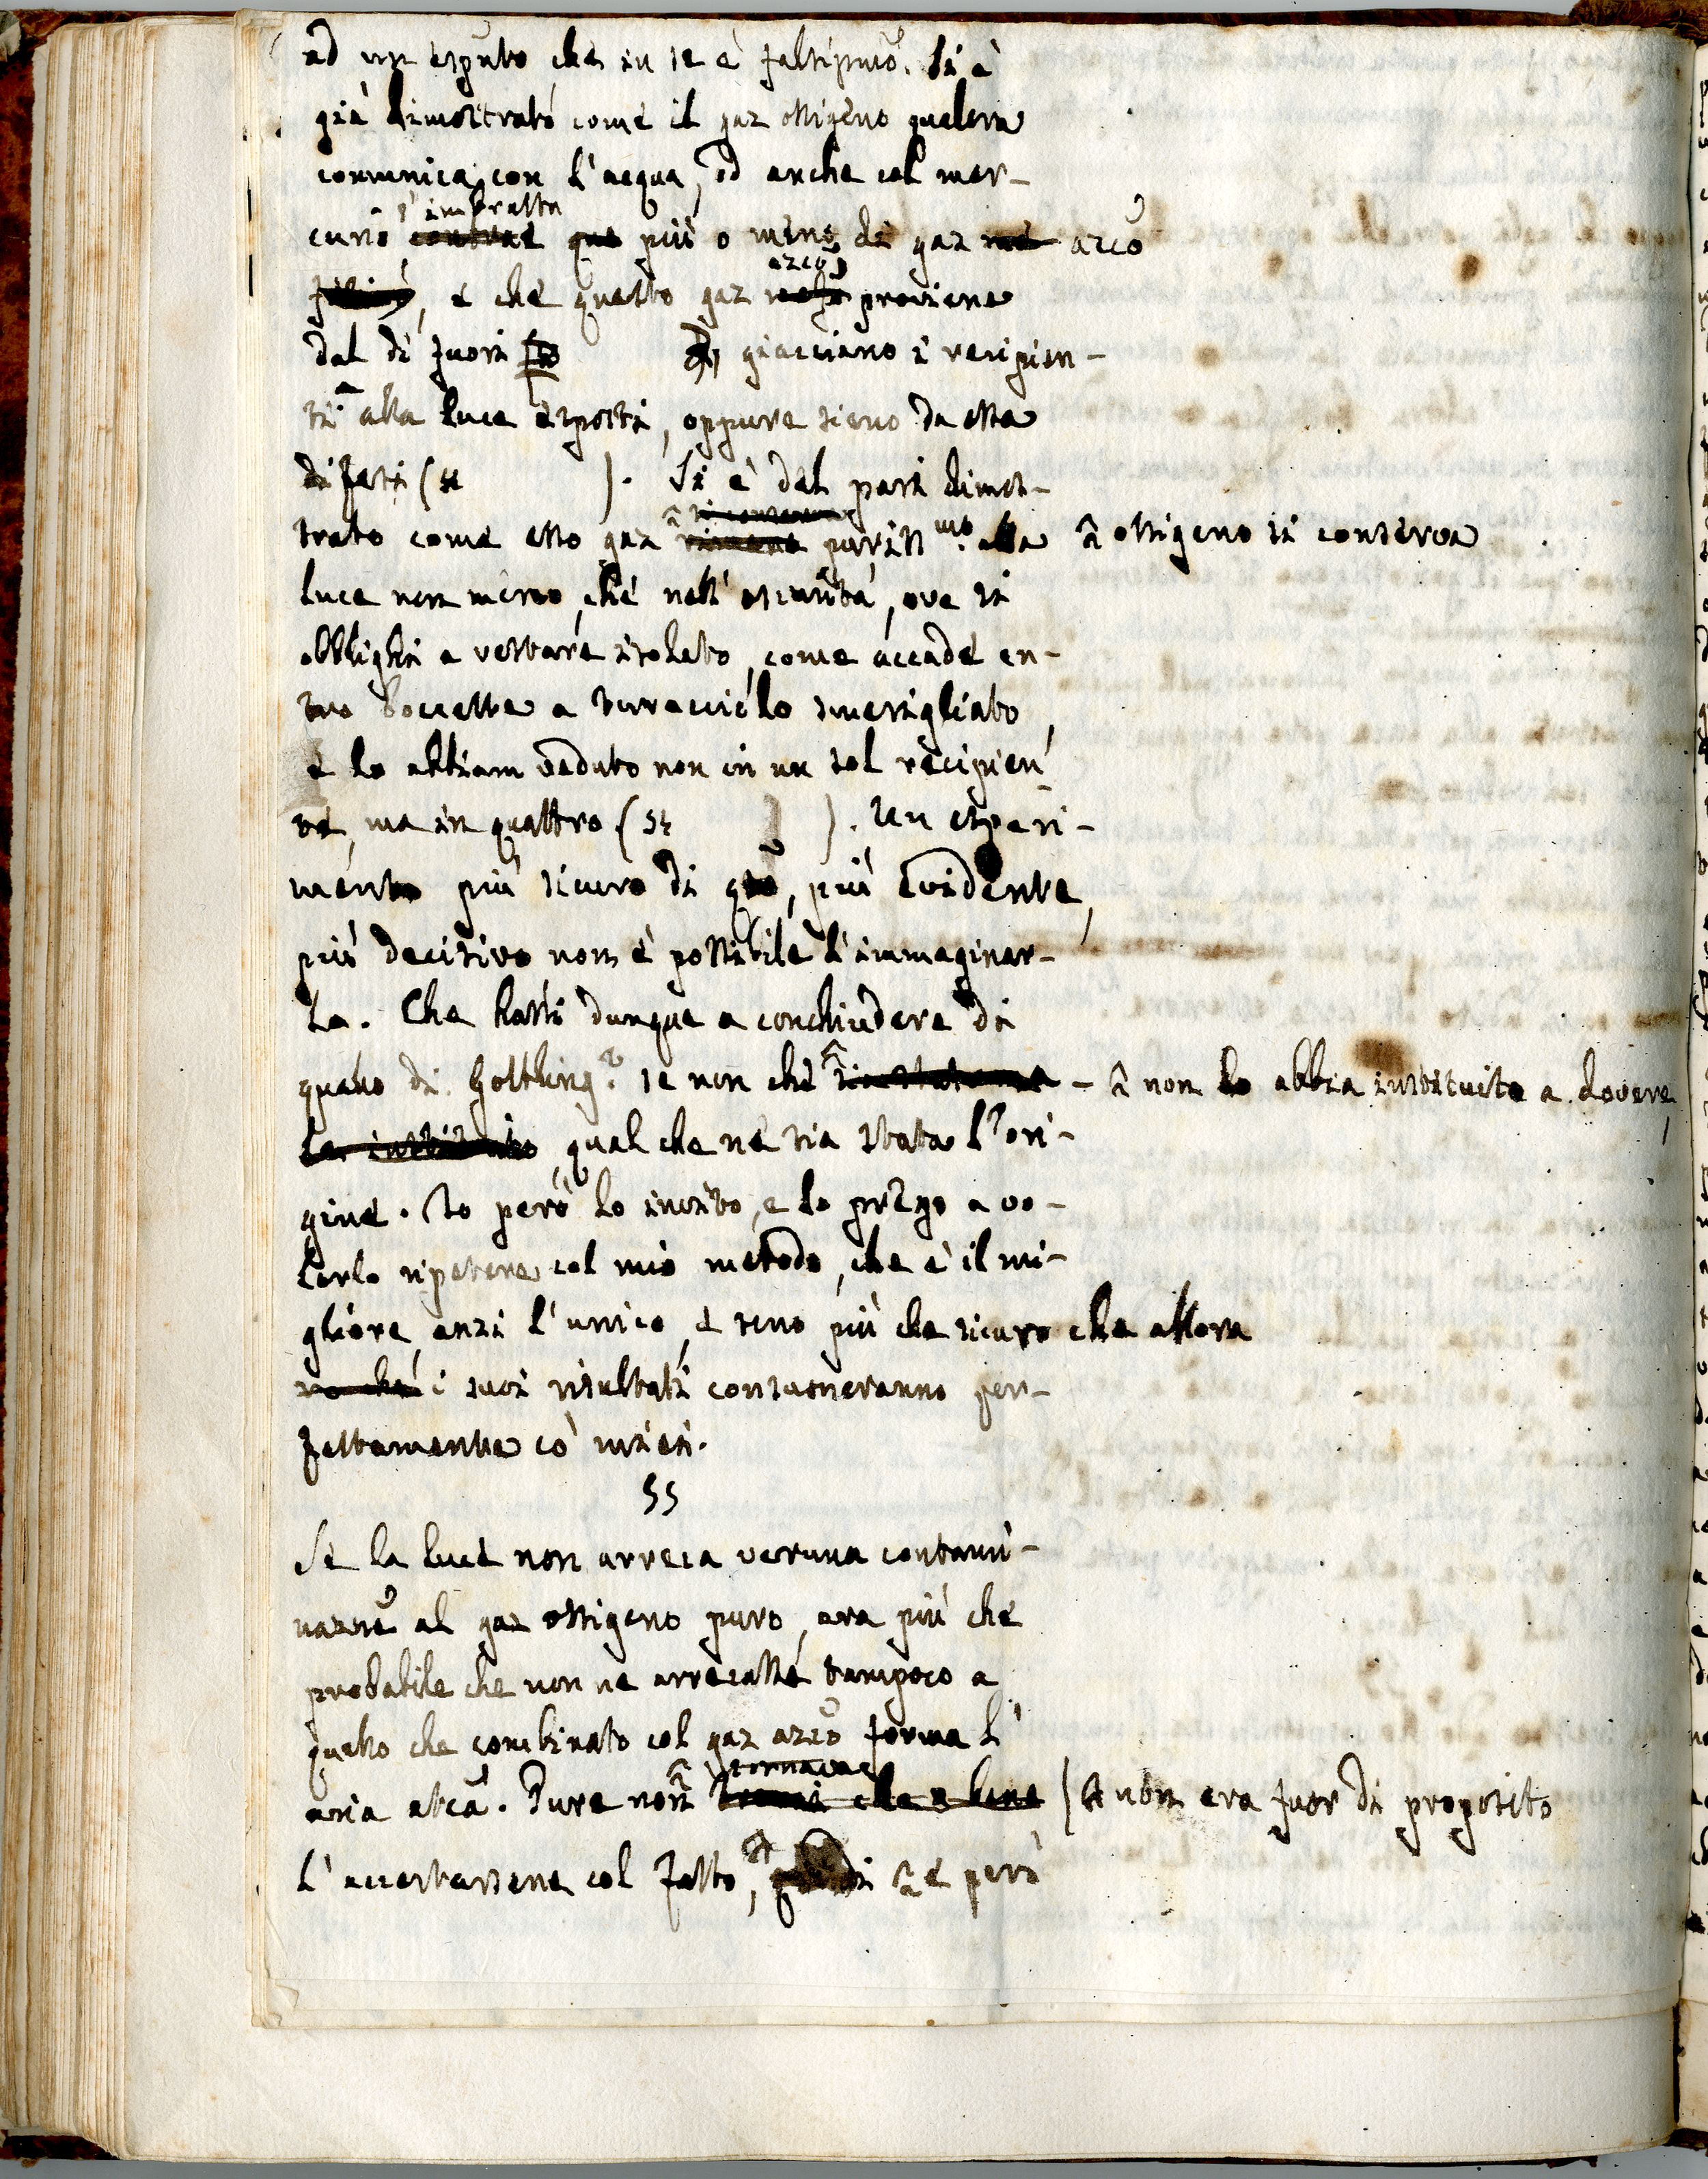 ad un esputo che in se è falsiss.mo. Si è
già dimostrato come il gaz ossigeno qualora
comunica con l'acqua, od anche col mer-
s'imbratta
curio più o meno di gaz azco
azco
, e che questo gaz proviene
dal di fuori giacciano i recipien-
ti alla luce esposti, oppure sieno da essa
difesi (si ). Si è del pari dimos-
trato come esso gaz puriss.mo alla ossigeno si conserva
luce non meno, che nell'oscurità, ove si
obblighi a restare isolato, come accade en-
tro boccette a turacciolo smerigliato,
e lo abbiam veduto non in un sol recipien
te, ma in quattro (si ). Un esperi-
mento più sicuro di qto, più evidente,
più decisivo non è possibile l'immaginar-
lo. Che hassi dunque a conchiudere di
quello di Gottling? se non che - non lo abbia instituito a dovere,
qual che ne sia stata l'ori-
gine. Io però lo invito, e lo prego a vo-
lerlo ripetere col mio metodo, che è il mi-
gliore, anzi l'unico, e sono più che sicuro che allora
i suoi risultati consuoneranno per-
fettamente co' miei.
§§
Se la luce non arreca veruna contami-
nazne al gaz ossigeno puro, era più che
probabile che non ne arrecasse tampoco a
quello che combinato col gaz azco forma l'
aria atca. Pure non era fuor di proposito
l'accertarsene col fatto, e però